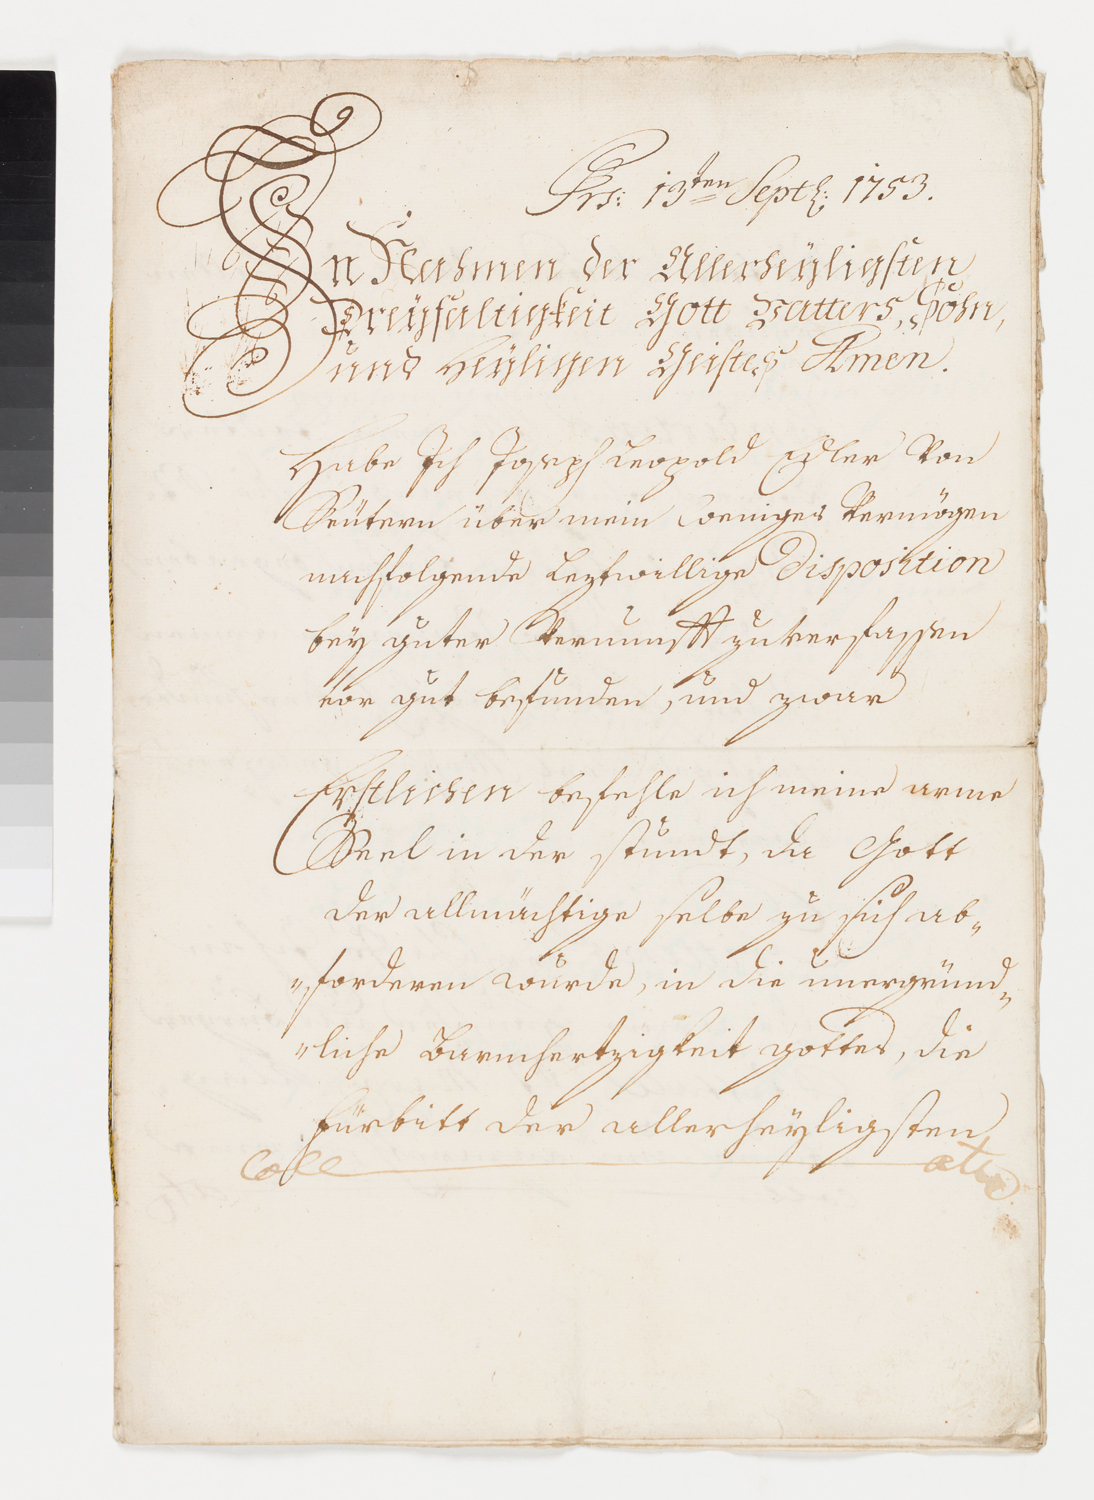 Prs: 13ten Septb: 1753.
In Nahmen der Allerheyligsten
Dreyfaltigkeit Gott Vatters, Sohn,
und Heyligen Geistes Amen.
Habe Ich Joseph Leopold Edler Von
Seütern über mein weniges Vermögen
nachfolgende Leztwillige Disposition
bey guter Vernunfft zu verfassen
vor gut befunden, und zwar
Erstlichen befehle ich meine arme
Seel in der stundt, da Gott
der allmächtige selbe zu sich ab„
„forderen wurde, in die unergründ„
„liche Barmhertzigkeit gottes, die
fürbitt der allerheyligsten